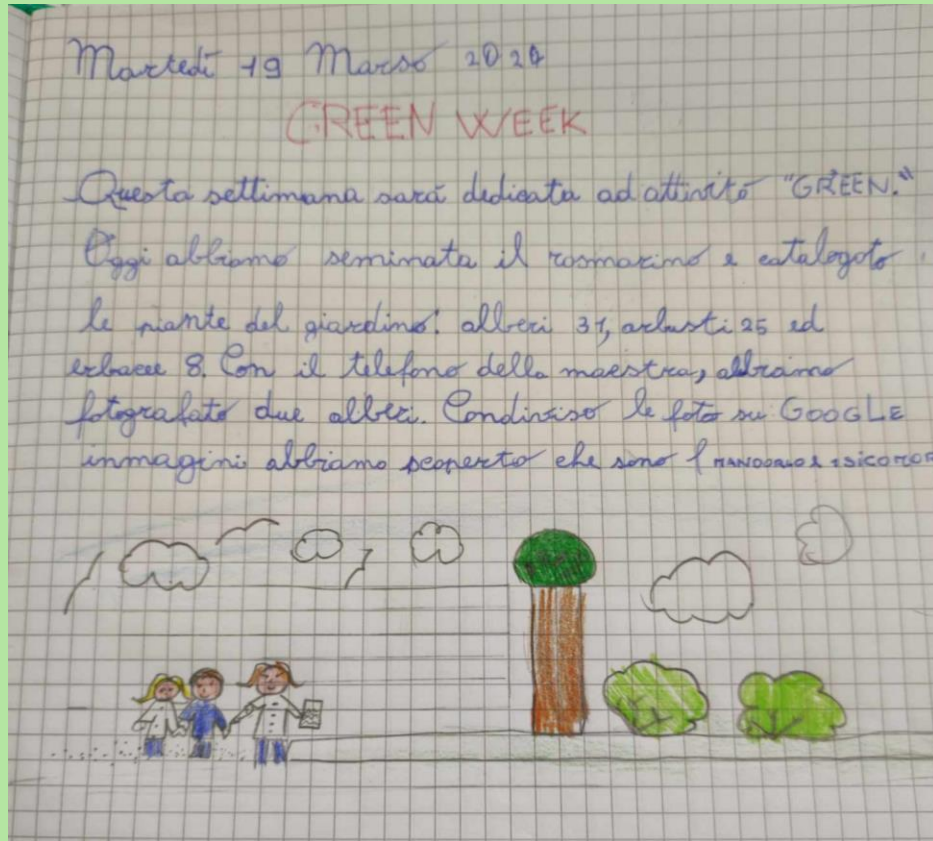 Martedì 19 Marso 2024
GREEN WEEK
Questa settimana sará dedicata ad attivitá "GREEN."
Oggi abbiamo seminata il rosmarino e catalogato
le piante del giardino: alberi 31, arbusti 25 ed
erbacee 8. Con il telefono della maestra, abbiamo
fotografato due alberi. Condiviso le foto su GOOGLE
inmagini abbiamo scoperto che sono